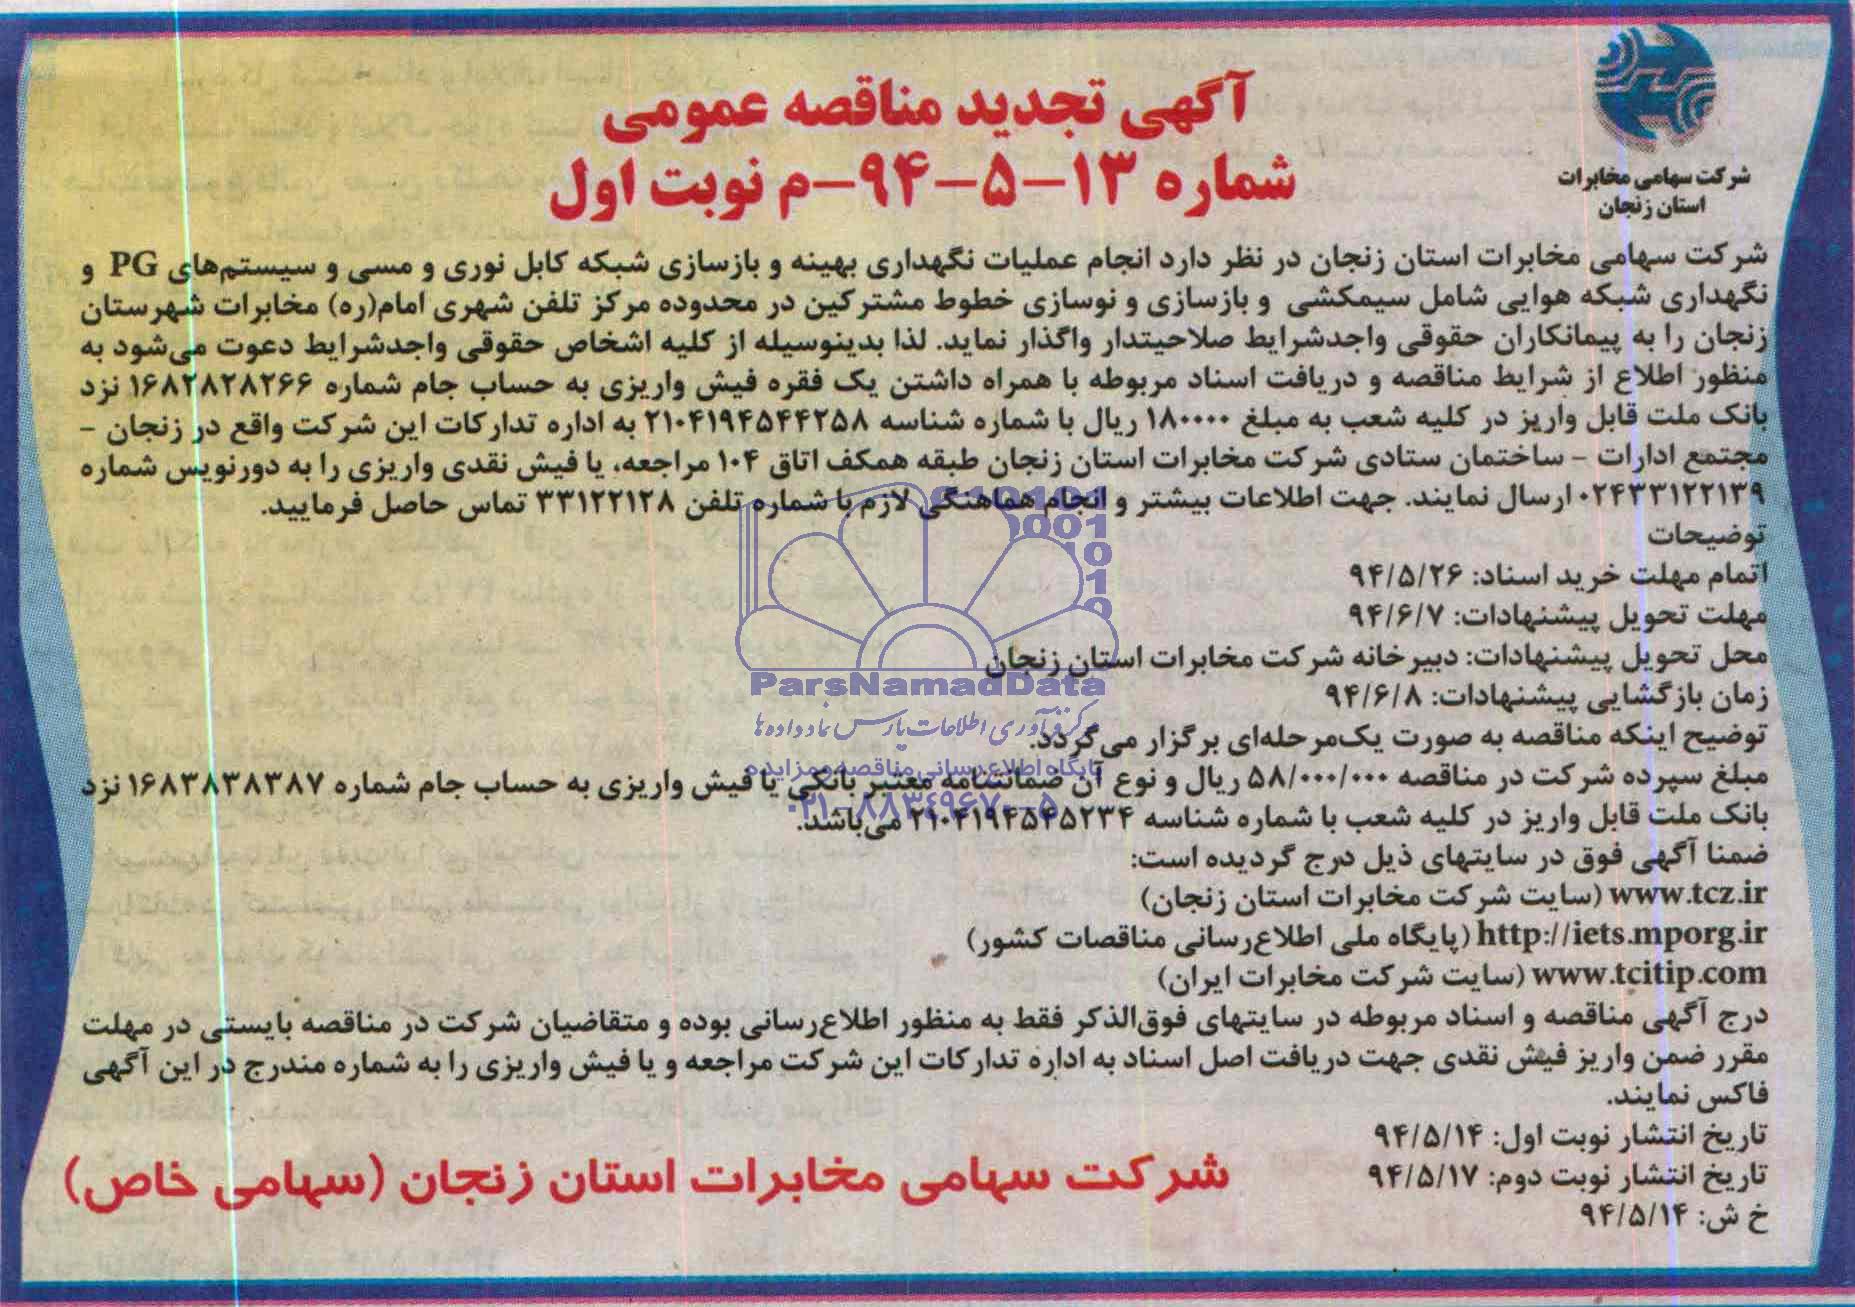 شرکت سهامی مخابرات
استان زنجان
آگهی تجدید مناقصه عمومی
شماره ۱۳-۵-۹۴-م نوبت اول
شرکت سهامی مخابرات استان زنجان در نظر دارد انجام عملیات نگهداری بهینه و بازسازی شبکه کابل نوری و مسی و سیستم‌های PG و
نگهداری شبکه هوایی شامل سیمکشی و بازسازی و نوسازی خطوط مشترکین در محدوده مرکز تلفن شهری امام(ره) مخابرات شهرستان
زنجان را به پیمانکاران حقوقی واجدشرایط صلاحیتدار واگذار نماید. لذا بدینوسیله از کلیه اشخاص حقوقی واجدشرایط دعوت می‌شود به
منظور اطلاع از شرایط مناقصه و دریافت اسناد مربوطه با همراه داشتن یک فقره فیش واریزی به حساب جام شماره ۱۶۸۲۸۲۸۲۶۶ نزد
بانک ملت قابل واریز در کلیه شعب به مبلغ ۱۸۰۰۰۰ ریال با شماره شناسه ۲۱۰۴۱۹۴۵۴۴۲۵۸ به اداره تدارکات این شرکت واقع در زنجان -
مجتمع ادارات - ساختمان ستادی شرکت مخابرات استان زنجان طبقه همکف اتاق ۱۰۴ مراجعه، یا فیش نقدی واریزی را به دورنویس شماره
۰۲۴۳۳۱۲۲۱۳۹ ارسال نمایند. جهت اطلاعات بیشتر و انجام هماهنگی لازم با شماره تلفن ۳۳۱۲۲۱۲۸ تماس حاصل فرمایید.
توضیحات
اتمام مهلت خرید اسناد: ۹۴/۵/۲۶
مهلت تحویل پیشنهادات: ۹۴/۶/۷
محل تحویل پیشنهادات: دبیرخانه شرکت مخابرات استان زنجان
زمان بازگشایی پیشنهادات: ۹۴/۶/۸
توضیح اینکه مناقصه به صورت یک‌مرحله‌ای برگزار می‌گردد.
مبلغ سپرده شرکت در مناقصه ۵۸/۰۰۰/۰۰۰ ریال و نوع آن ضمانتنامه معتبر بانکی یا فیش واریزی به حساب جام شماره ۱۶۸۳۸۳۸۳۸۷ نزد
بانک ملت قابل واریز در کلیه شعب با شماره شناسه ۲۱۰۴۱۹۴۵۴۵۲۳۴ می‌باشد.
ضمنا آگهی فوق در سایتهای ذیل درج گردیده است:
www.tcz.ir (سایت شرکت مخابرات استان زنجان)
http://iets.mporg.ir (پایگاه ملی اطلاع‌رسانی مناقصات کشور)
www.tcitip.com (سایت شرکت مخابرات ایران)
درج آگهی مناقصه و اسناد مربوطه در سایتهای فوق‌الذکر فقط به منظور اطلاع‌رسانی بوده و متقاضیان شرکت در مناقصه بایستی در مهلت
مقرر ضمن واریز فیش نقدی جهت دریافت اصل اسناد به اداره تدارکات این شرکت مراجعه و یا فیش واریزی را به شماره مندرج در این آگهی
فاکس نمایند.
تاریخ انتشار نوبت اول: ۹۴/۵/۱۴
تاریخ انتشار نوبت دوم: ۹۴/۵/۱۷
خ ش: ۹۴/۵/۱۴
شرکت سهامی مخابرات استان زنجان (سهامی خاص)
ParsNamadData
مرکز فرآوری اطلاعات پارس نماد داده‌ها
پایگاه اطلاع رسانی مناقصه و مزایده
۰۲۱-۸۸۳۴۹۶۷۰-۵